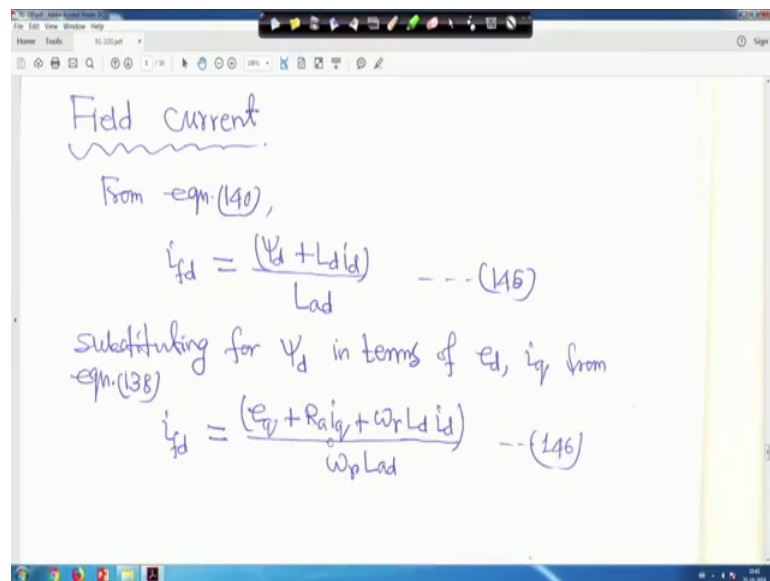 91-100.pdf - Adobe Acrobat Reader DC
File Edit View Window Help
Home Tools 91-100.pdf × Sign
Field current
From eqn.(140),
i_fd = (Ψd + Ld id) / Lad ----(145)
substituting for Ψd in terms of ed, iq from
eqn.(138)
i_fd = (eq + Ra iq + ωr Ld id) / ωr Lad ---(146)